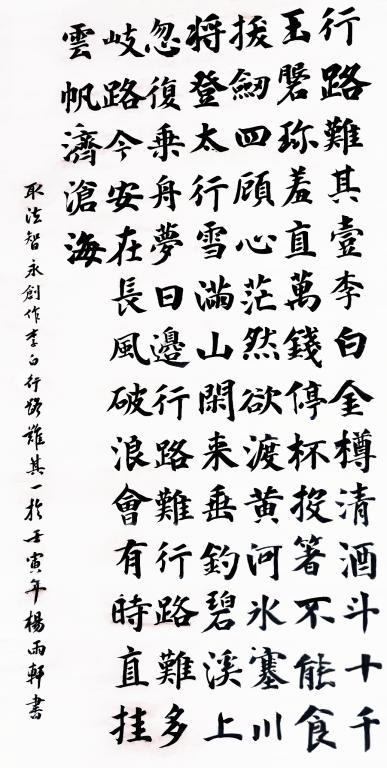 行路難其壹李白金樽清酒斗十千
玉磐珎羞直萬錢停杯投箸不能食
拔劒四顧心茫然欲渡黄河氷塞川
将登太行雪滿山閑来垂釣碧溪上
忽復乗舟夢日邊行路難行路難多
岐路今安在長風破浪會有時直挂
雲帆濟滄海
取法智永創作李白行路難其一於壬寅年楊雨軒書